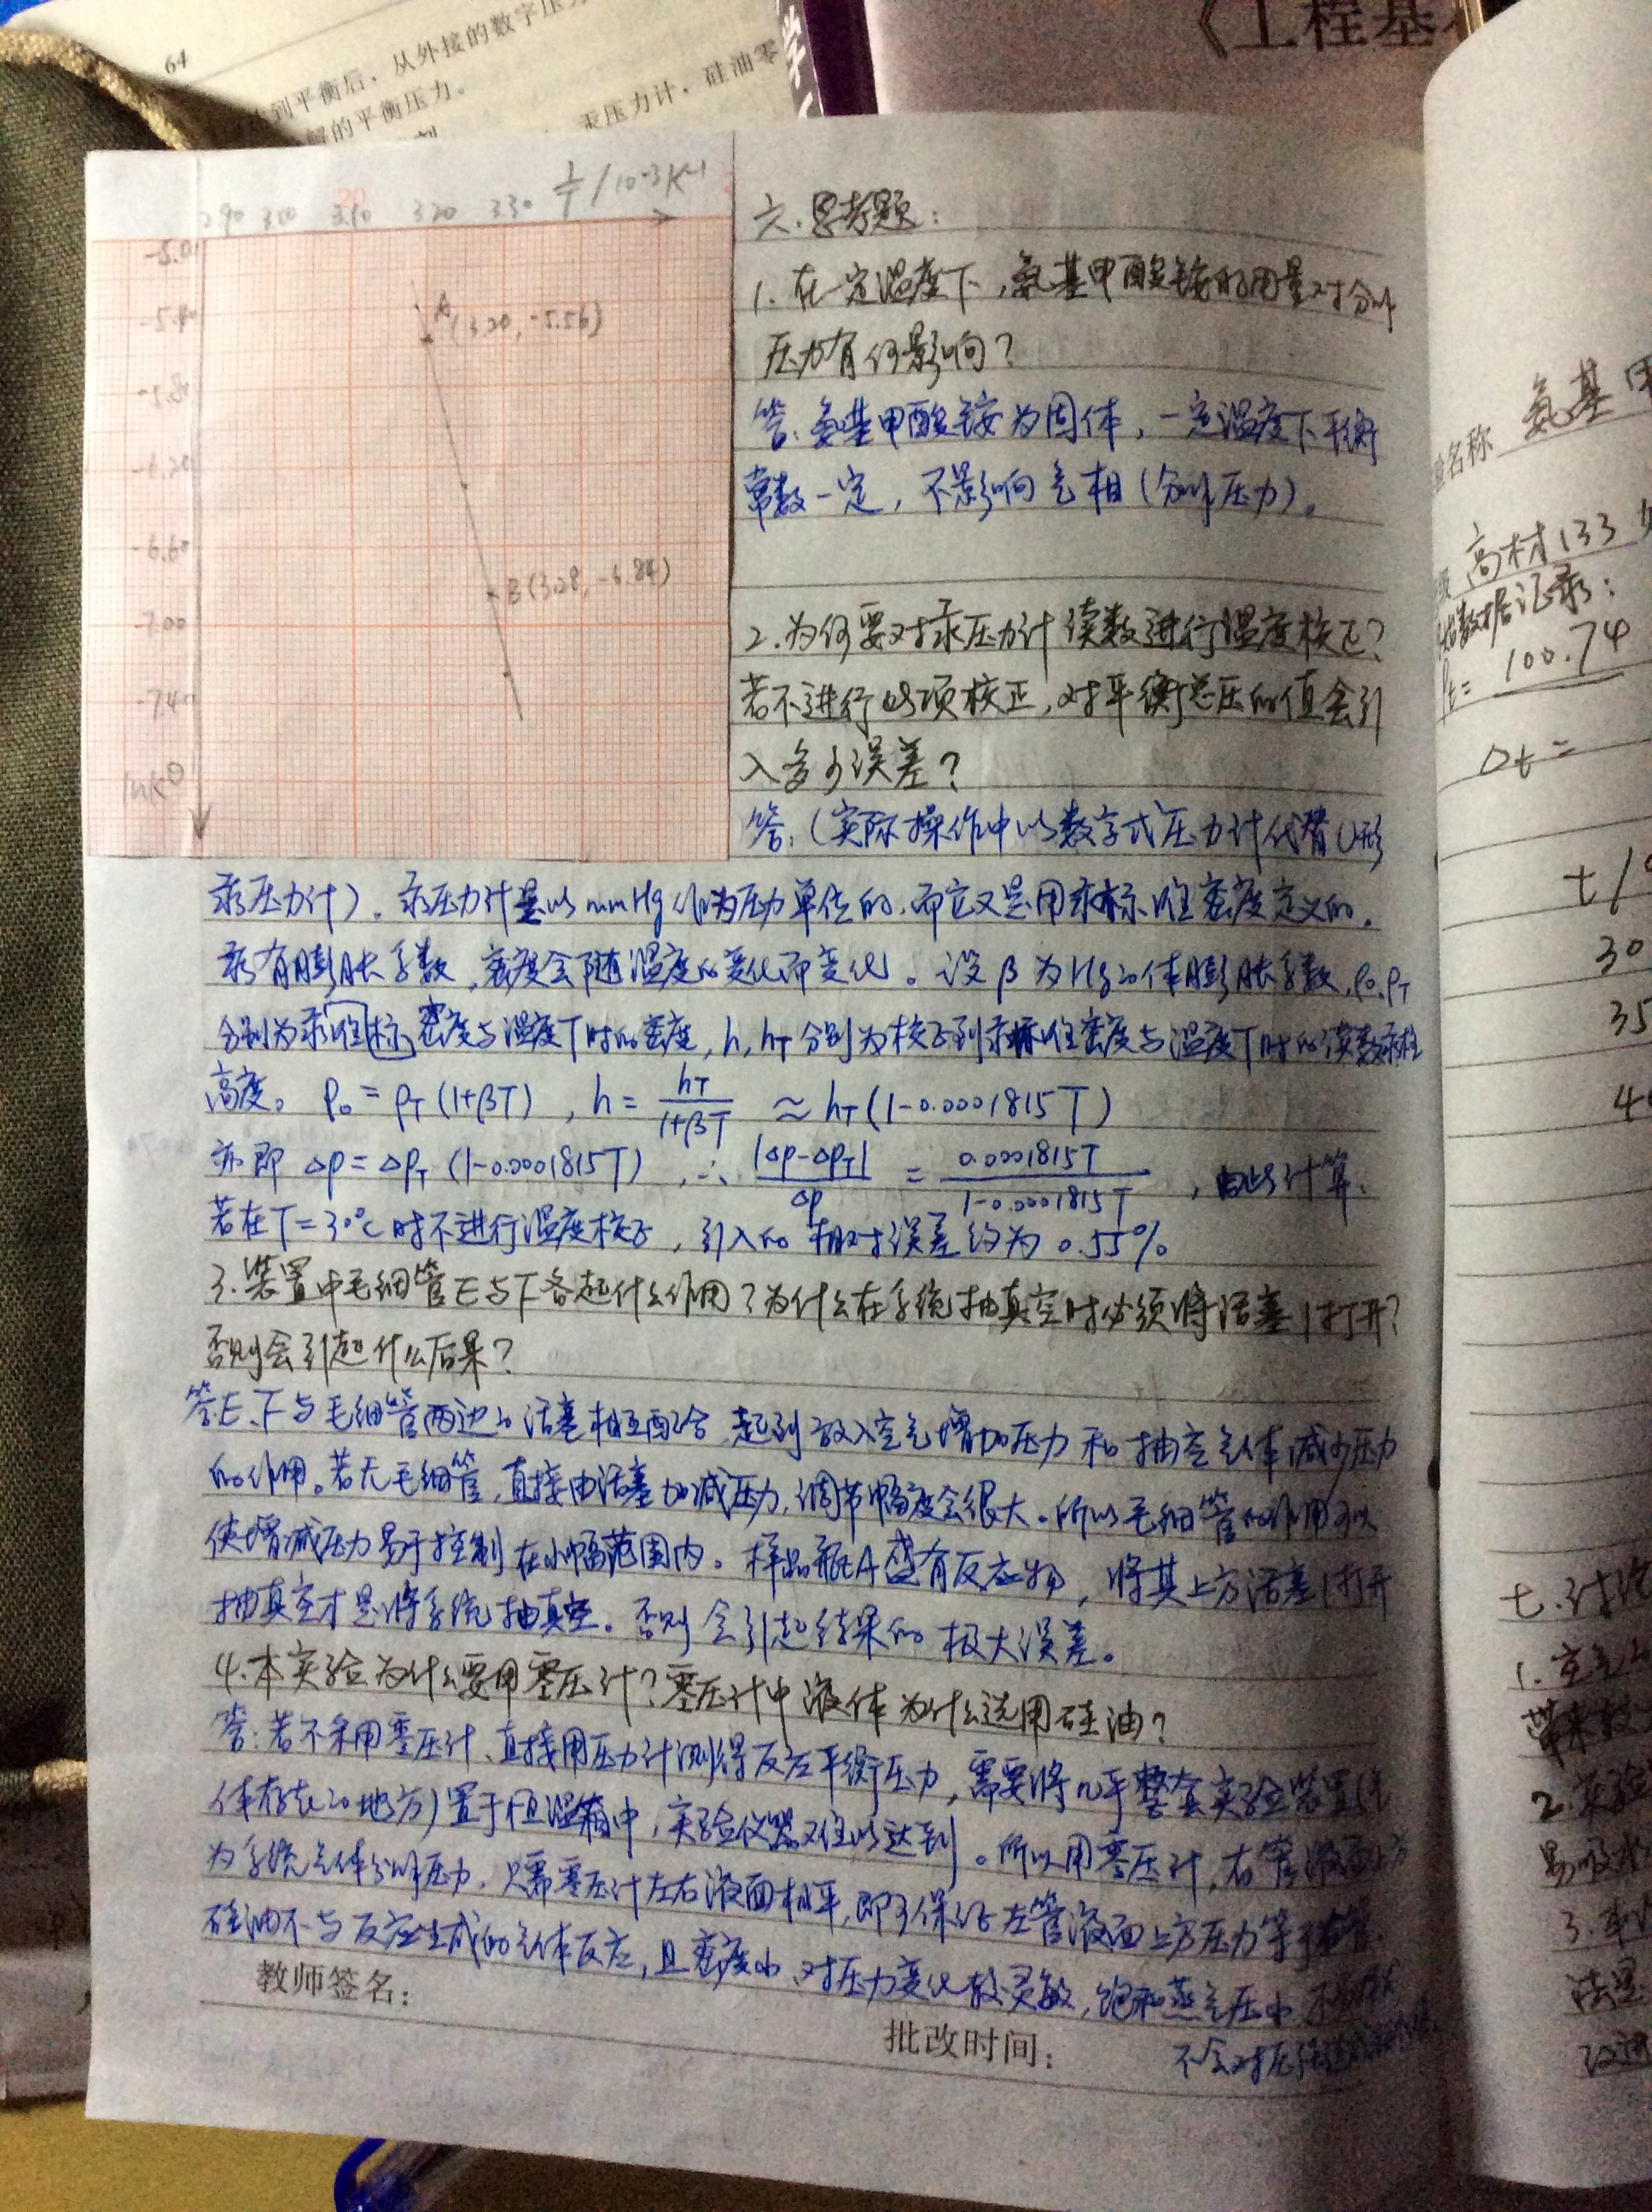 64
到平衡后，从外接的数字压
解的平衡压力。
汞压力计，硅油零
学
《工程基
2.90 3.00 3.10 3.20 3.30 1/T /10⁻³K⁻¹
-5.0
-5.40
-5.80
-6.20
-6.60
-7.00
-7.40
lnK
A(3.20, -5.56)
B(3.28, -6.84)
六.思考题：
1. 在一定温度下，氨基甲酸铵的用量对分解
压力有何影响？
答：氨基甲酸铵为固体，一定温度下平衡
常数一定，不影响气相（分解压力）。
2.为何要对汞压力计读数进行温度校正？
若不进行此项校正，对平衡总压的值会引
入多少误差？
答：（实际操作中以数字式压力计代替U形
汞压力计）。汞压力计是以mmHg作为压力单位的，而它又是用汞标准密度定义的。
汞有膨胀系数，密度会随温度的变化而变化。设β为Hg的体膨胀系数，ρ₀,ρT
分别为汞准标密度与温度T时的密度，h, hT分别为校正到汞标准密度与温度T时的读数汞柱
高度。ρ₀=ρT(1+βT)，h=hT/(1+βT)≈hT(1-0.0001815T)
亦即 Δp=ΔpT(1-0.0001815T)，∴|Δp-ΔpT|/Δp=0.0001815T/(1-0.0001815T)，由此计算，
若在T=30℃时不进行温度校正，引入的相对误差约为0.55%
3.装置中毛细管E与F各起什么作用？为什么在系统抽真空时必须将活塞1打开？
否则会引起什么后果？
答：E、F与毛细管两边的活塞相互配合，起到放入空气增加压力和抽空气体减少压力
的作用。若无毛细管，直接由活塞加减压力，调节幅度会很大。所以毛细管的作用可以
使增减压力易于控制在小幅范围内。样品瓶A盛有反应物，将其上方活塞1打开
抽真空才是将系统抽真空。否则会引起结果的极大误差。
4.本实验为什么要用零压计？零压计中液体为什么选用硅油？
答：若不采用零压计，直接用压力计测得反应平衡压力，需要将几乎整套实验装置（
体存在的地方）置于恒温箱中，实验仪器难以达到。所以用零压计，右管液面上方
为系统气体分解压力，只需零压计左右液面相平，即可保证左管液面上方压力等于
硅油不与反应生成的气体反应，且密度小，对压力变化较灵敏，饱和蒸气压小
不会对
教师签名：
批改时间：
氨基甲
名称
高材133
数据记录：
100.74
Δt =
t/
30
35
4
七.讨论
1.
2.实验
易吸
3.